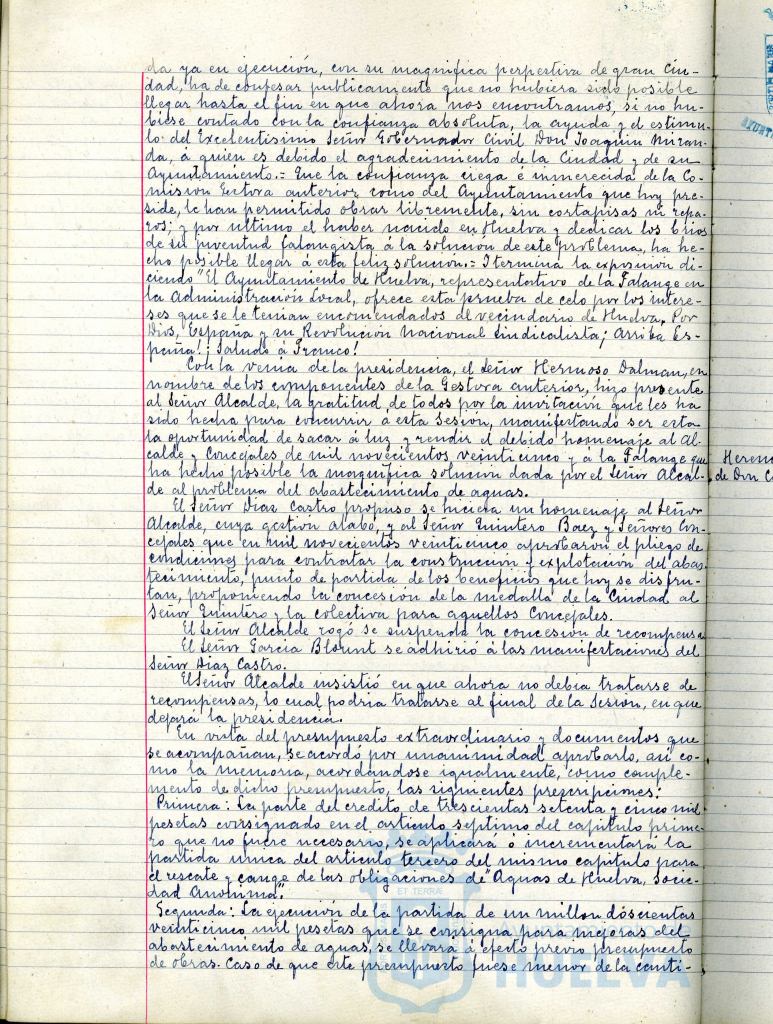 da ya en ejecución, con su magnifica perpestiva de gran Ciu-
dad, ha de confesar publicamente que no hubiera sido posible
llegar hasta el fin en que ahora nos encontramos, si no hu-
biese contado con la confianza absoluta, la ayuda y el estimu-
lo del Excelentisimo Señor Gobernador Civil Don Joaquin Miran-
da, á quien es debido el agradecimiento de la Ciudad y de su
Ayuntamiento.= Que la confianza ciega é inmerecida de la Co-
mision Gestora anterior como del Ayuntamiento que hoy pre-
side, le han permitido obrar libremente, sin cortapisas ni repa-
ros; y por ultimo el haber nacido en Huelva y dedicar los brios
de su juventud falangista á la solución de este problema, ha he-
cho posible llegar á esta feliz solucion.= I termina la exposicion di-
ciendo "El Ayuntamiento de Huelva, representativo de la Falange en
la Administración Local, ofrece esta prueba de celo por los intere-
ses que se le tenian encomendados al vecindario de Huelva. Por
Dios, España y su Revolución Nacional Sindicalista; Arriba Es-
paña! ¡Saludo á Franco!
Con la venia de la presidencia, el Señor Hermoso Dalman, en
nombre de los componentes de la Gestora anterior, hizo presente
al Señor Alcalde, la gratitud de todos por la invitación que les ha
sido hecha para concurrir a esta Sesión, manifestando ser esta
la oportunidad de sacar á luz y rendir el debido homenaje al Al-
calde y Concejales de mil novecientos veinticinco y a la Falange que
ha hecho posible la magnifica solucion dada por el Señor Alcal-
de al problema del abastecimiento de aguas.
El Señor Diaz Castro propuso se hiciera un homenaje al Señor
Alcalde, cuya gestión alabó, y al Señor Quintero Baez y Señores Con-
cejales que en mil novecientos veinticinco aprobaron el pliego de
condiciones para contratar la construccion y explotación del abas-
tecimiento, punto de partida de los beneficios que hoy se disfru-
tan, proponiendo la concesión de la medalla de la Ciudad al
Señor Quintero y la colectiva para aquellos Concejales.
El Señor Alcalde rogó se suspenda la concesion de recompensa
El Señor Garcia Blount se adhirió á las manifestaciones del
Señor Diaz Castro.
El Señor Alcalde insistió en que ahora no debia tratarse de
recompensas, lo cual podria tratarse al final de la Sesión, en que
dejará la presidencia.
En vista del presupuesto extraordinario y documentos que
se acompañan, se acordó por unanimidad aprobarlo, asi co-
mo la memoria, acordandose igualmente, como comple-
mento de dicho presupuesto, las siguientes prescripciones:
Primera: La parte del credito de trescientas setenta y cinco mil
pesetas consignado en el articulo septimo del capitulo prime-
ro que no fuere necesario, se aplicará o incrementará la
partida unica del articulo tercero del mismo capitulo para
el rescate y cange de las obligaciones de "Aguas de Huelva, Socie-
dad Anonima".
Segunda: La ejecución de la partida de un millon doscientas
veinticinco mil pesetas que se consigna para mejoras del
abastecimiento de aguas, se llevará á efecto previo presupuesto
de obras. Caso de que este presupuesto fuese menor de la canti-
de Don
ET TERRÆ
HUELVA